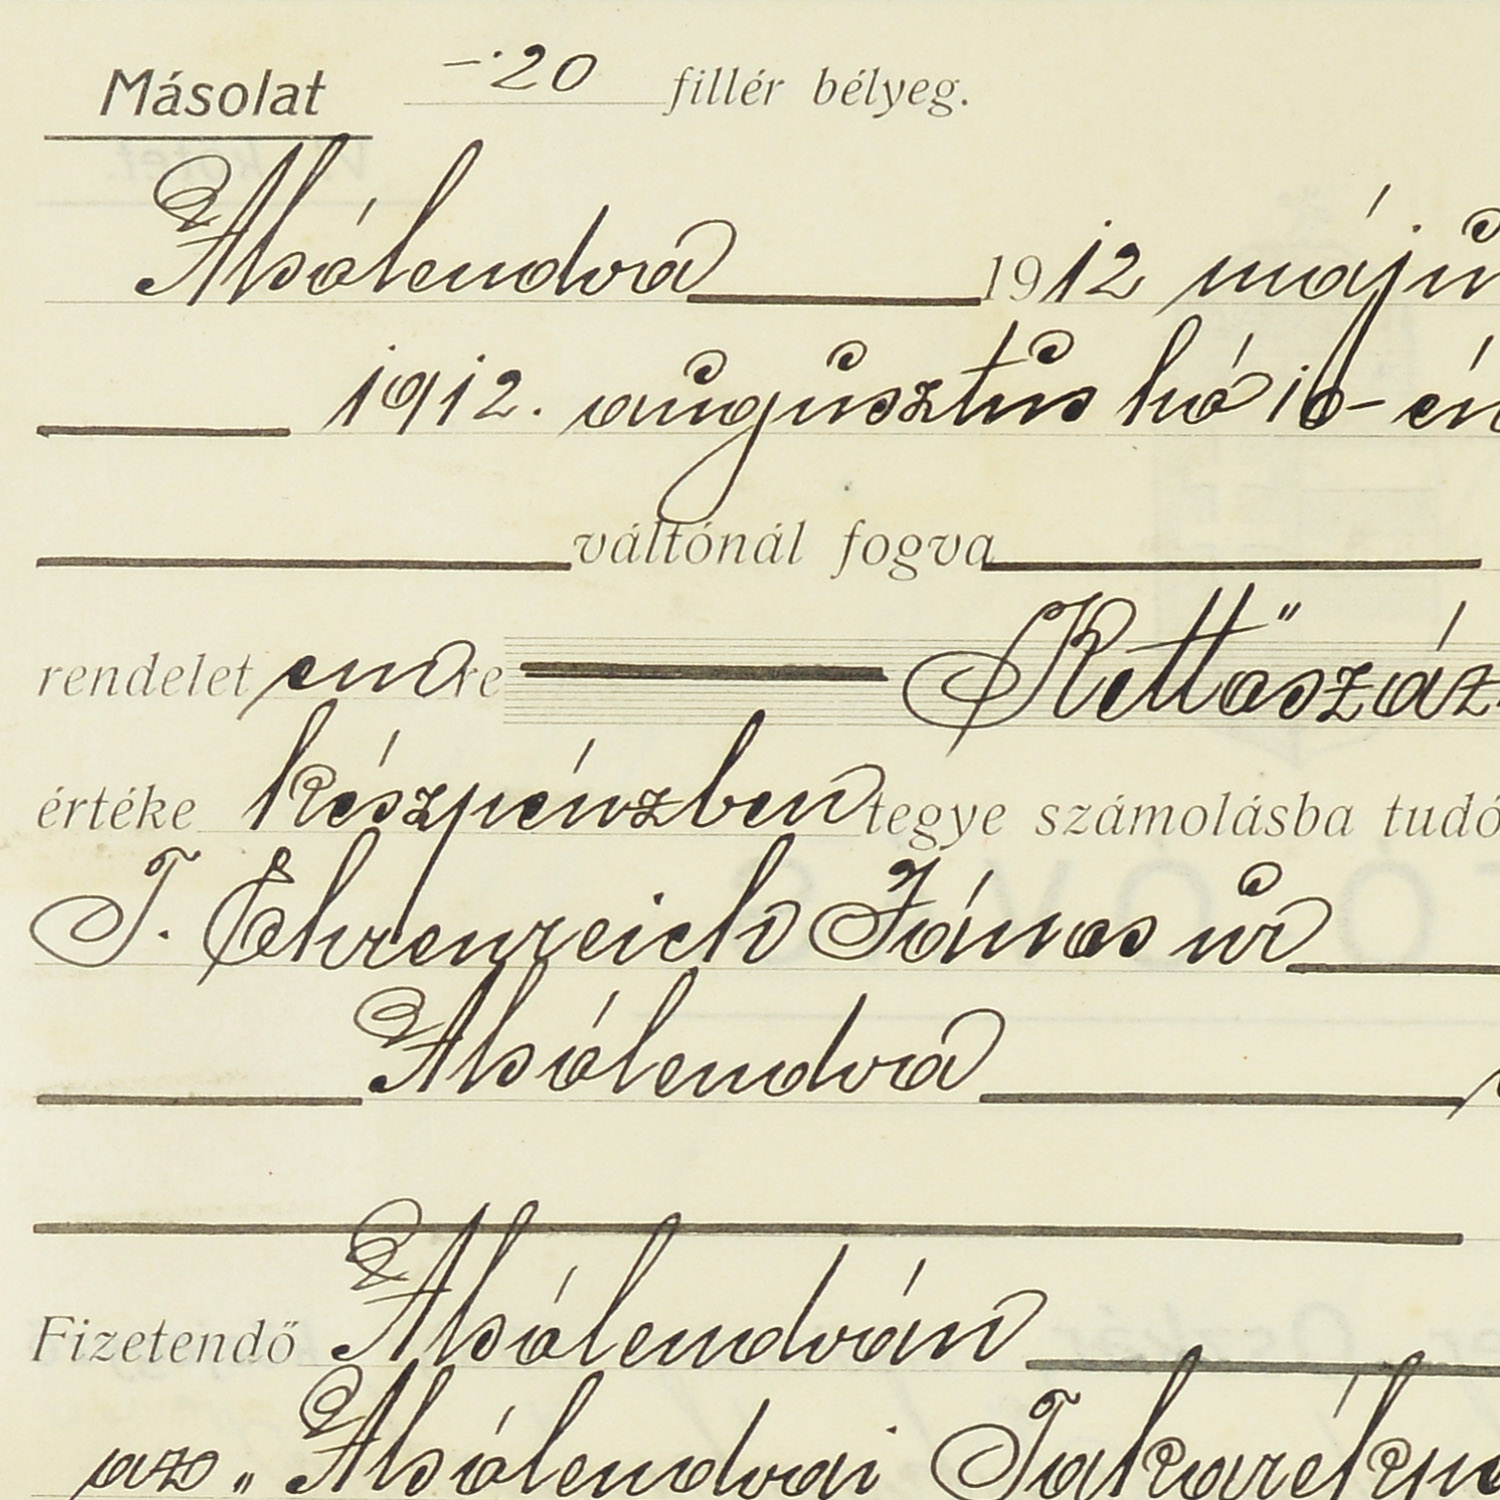 Másolat —·20 fillér bélyeg.
Alsólendva 1912 máju
1912. augusztus hó 10-én
váltónál fogva
rendelet emre Kettőszáz
értéke készpénzben tegye számolásba tudó
T. Ehrenreich János úr
Alsólendva
Fizetendő Alsólendván
az „Alsólendvai Takarékpé